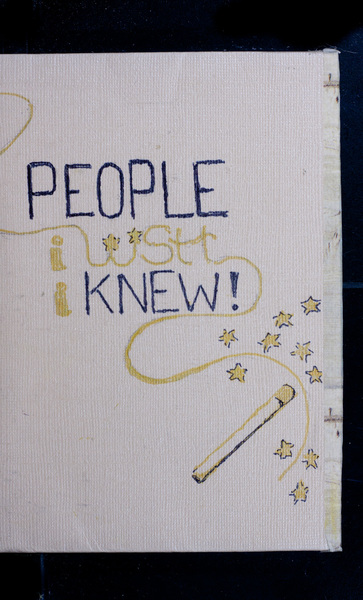 PEOPLE
i WISH
i KNEW!